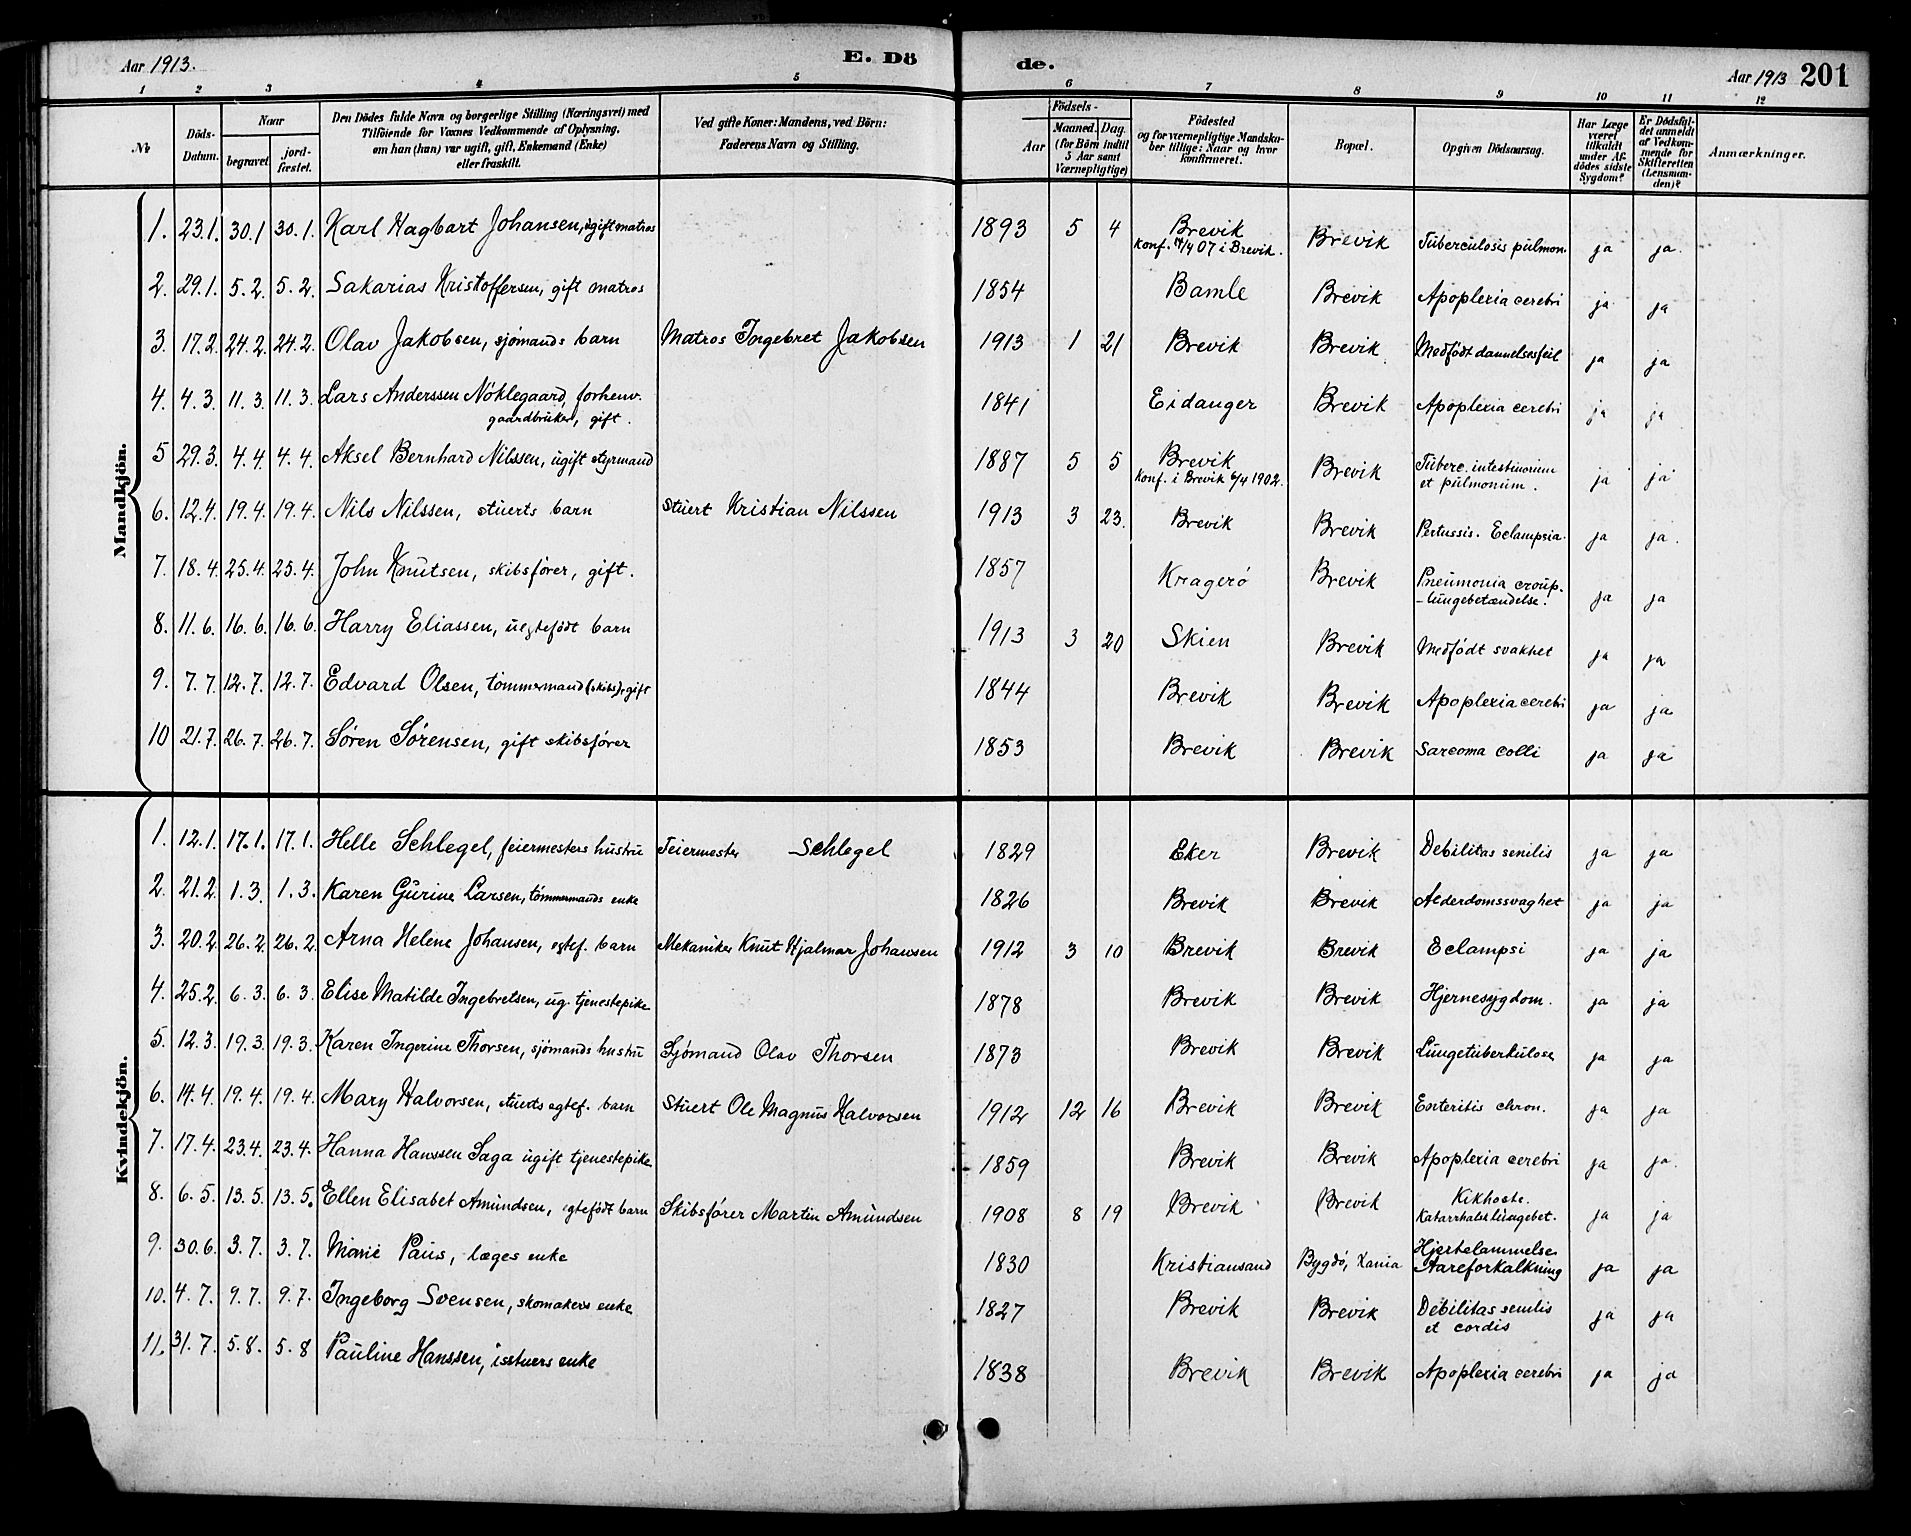 Aar 1913. E. Dö de. Aar 1913 201
1 2 3 4 5 6 7 8 9 10 11 12
No
Döds-Datum.
Naar
begravet. jord-fæstet.
Den Dödes fulde Navn og borgerlige Stilling (Næringsvei) med
Tilföiende for Voxnes Vedkommende af Oplysning,
om han (hun) var ugift, gift, Enkemand (Enke)
eller fraskilt.
Ved gifte Koner: Mandens, ved Börn:
Faderens Navn og Stilling.
Födsels-
Aar Maaned. Dag.
(for Börn indtil
5 Aar samt
Værnepligtige)
Födested
og for værnepligtige Mandska-
ber tillige: Naar og hvor
konfirmeret.
Bopæl.
Opgiven Dödsaarsag.
Har Læge
været
tilkaldt
under Af-
dödes sidste
Sygdom?
Er Dödsfal-
det anmeldt
af Vedkom-
mende for
Skifteretten
(Lensman-
den)?
Anmærkninger.
Mandkjön.
1. 23.1. 30.1 30.1. Karl Hagbart Johansen, ugift matros 1893 5 4 Brevik Brevik Tuberculosis pulmon. ja ja.
konf. 7/4 07 i Brevik.
2. 29.1. 5.2. 5.2. Sakarias Kristoffersen, gift matros 1854 Bamle Brevik Apoplexia cerebri ja ja
3. 17.2. 24.2. 24.2. Olav Jakobsen, sjömands barn Matros Ingebret Jakobsen 1913 1 21 Brevik Brevik Medfödt dannelsesfeil ja ja
4. 4.3. 11.3. 11.3. Lars Anderssen Nöklegaard, forhenv. 1841 Eidanger Brevik Apoplexia cerebri ja ja
gaardbruker, gift.
5 29.3. 4.4. 4.4. Aksel Bernhard Nilssen, ugift styrmand 1887 5 5 Brevik Brevik Tuberc. intestinorium ja ja
konf. i Brevik 6/4 1902. et pulmonum.
6. 12.4. 19.4. 19.4. Nils Nilssen, stuerts barn Stuert Kristian Nilssen 1913 3 23. Brevik Brevik Pertussis. Eclampsia. ja ja.
7. 18.4. 25.4. 25.4. John Knutsen, skibsfører, gift. 1857 Kragerö Brevik Pneumonia croup. ja ja
-lungebetændelse.
8. 11.6. 16.6. 16.6. Harry Eliassen, uegtefödt barn 1913 3 20 Skien Brevik Medfödt svakhet ja ja
9. 7.7. 12.7. 12.7. Edvard Olsen, tömmermand (skibs), gift 1844 Brevik Brevik Apoplexia cerebri ja ja
10 21.7. 26.7. 26.7. Søren Sørensen, gift skibsfører 1853 Brevik Brevik Sarcoma colli ja ja
Kvindekjön.
1. 12.1. 17.1. 17.1. Helle Schlegel, feiermesters hustru Feiermester Schlegel 1829 Eker Brevik Debilitas senilis ja ja
2. 21.2. 1.3. 1.3. Karen Gurine Larsen, tömmermands enke 1826 Brevik Brevik Alderdomssvaghet ja ja
3. 20.2. 26.2. 26.2. Arna Helene Johansen, egtef. barn Mekaniker Knut Hjalmar Johansen 1912 3 10 Brevik Brevik Eclampsi ja ja
4. 25.2. 6.3. 6.3. Elise Matilde Ingebretsen, ug. tjenestepike 1878 Brevik Brevik Hjernesygdom. ja ja
5. 12.3. 19.3. 19.3. Karen Ingerine Thorsen, sjömands hustru Sjömand Olav Thorsen 1873 Brevik Brevik Lungetuberkulose ja ja
6. 14.4. 19.4. 19.4. Mary Halvorsen, stuerts egtef. barn Stuert Ole Magnus Halvorsen 1912 12 16 Brevik Brevik Enteritis chron. ja ja
7. 17.4. 23.4. 23.4. Hanna Hanssen Saga ugift tjenestepike 1859 Brevik Brevik Apoplexia cerebri ja ja.
8. 6.5. 13.5. 13.5. Ellen Elisabet Amundsen, egtefödt barn Skibsfører Martin Amundsen 1908 8 19 Brevik Brevik Kikhoste. ja ja
Katarrhalsk lungebet.
9. 30.6. 3.7. 3.7. Marie Paus, læges enke 1830 Kristiansand Bygdö, Xania Hjertelammelse ja ja
Aareforkalkning
10. 4.7. 9.7. 9.7. Ingeborg Svensen, skomakers enke 1827 Brevik Brevik Debilitas senilis ja ja
et cordis
11. 31.7. 5.8. 5.8 Pauline Hanssen, isstuers enke 1838 Brevik Brevik Apoplexia cerebri ja ja